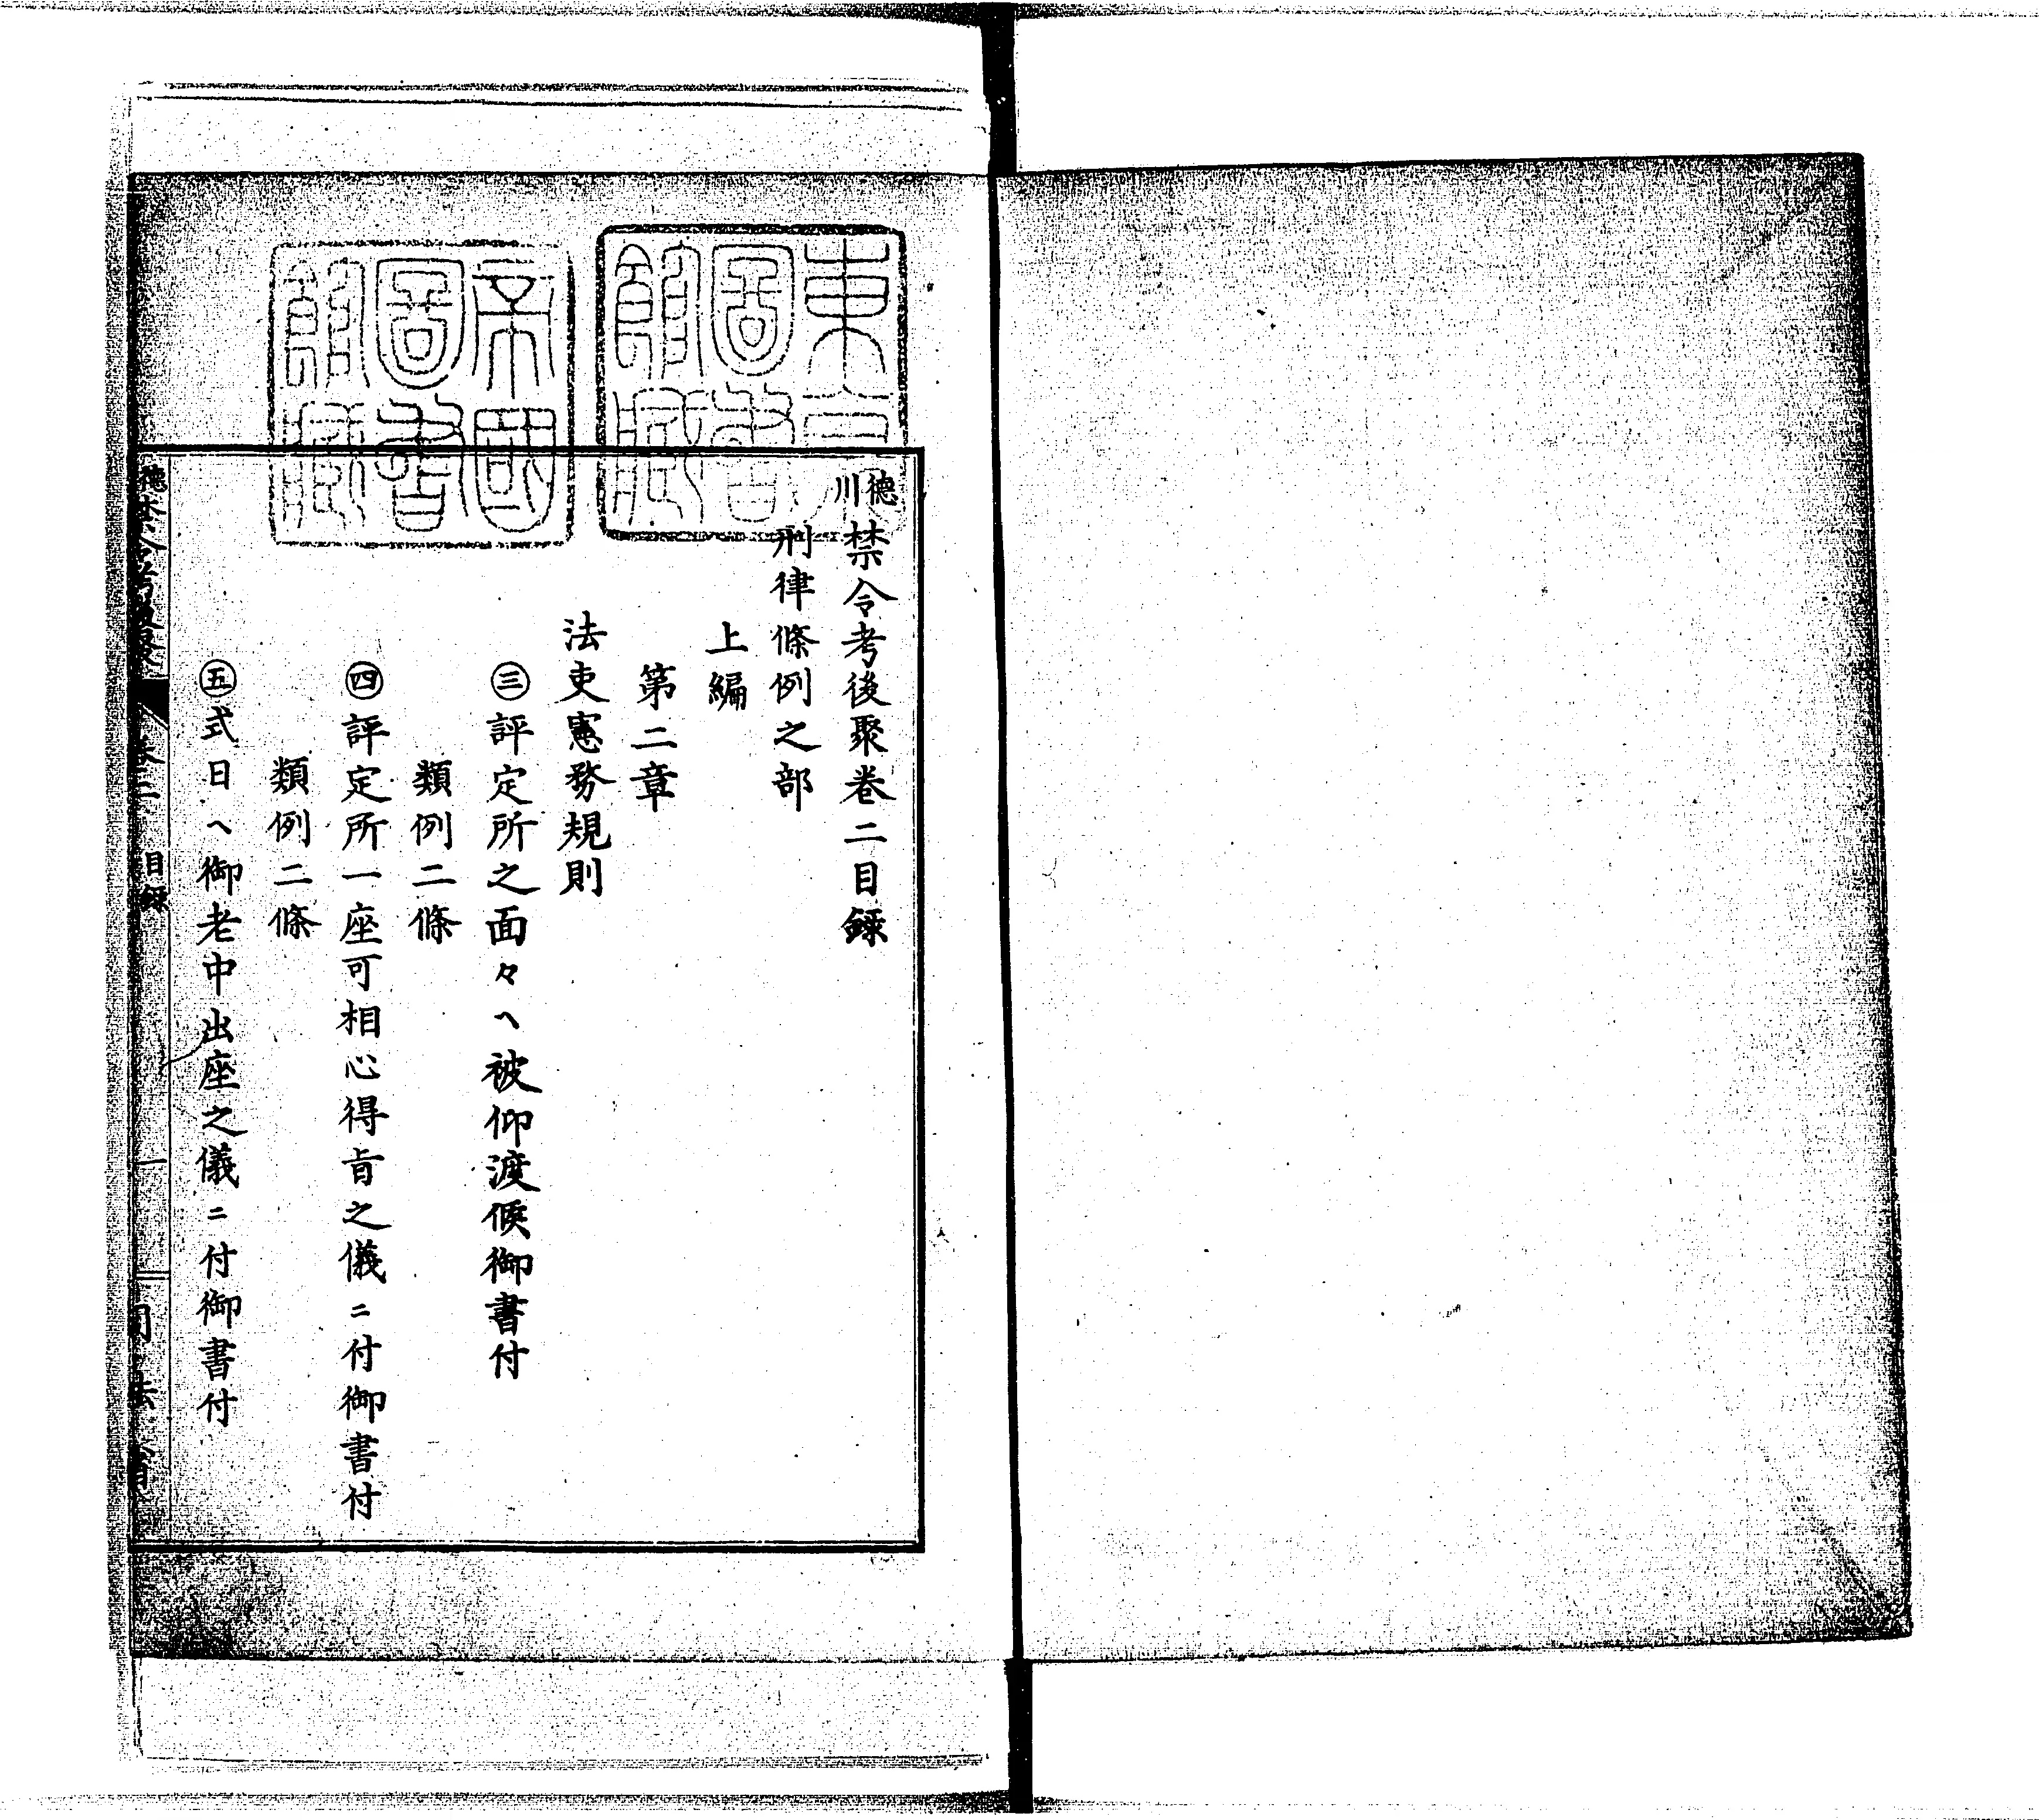 德川禁令考後聚卷二目錄
刑律條例之部
上編
第二章
法吏憲務規則
㊂評定所之面々ヘ被仰渡候御書付
類例二條
㊃評定所一座可相心得旨之儀ニ付御書付
類例二條
㊄式日ヘ御老中出座之儀ニ付御書付
德川禁令考後聚 卷二 目錄 一 司法省
東京圖書館藏
帝國圖書館藏